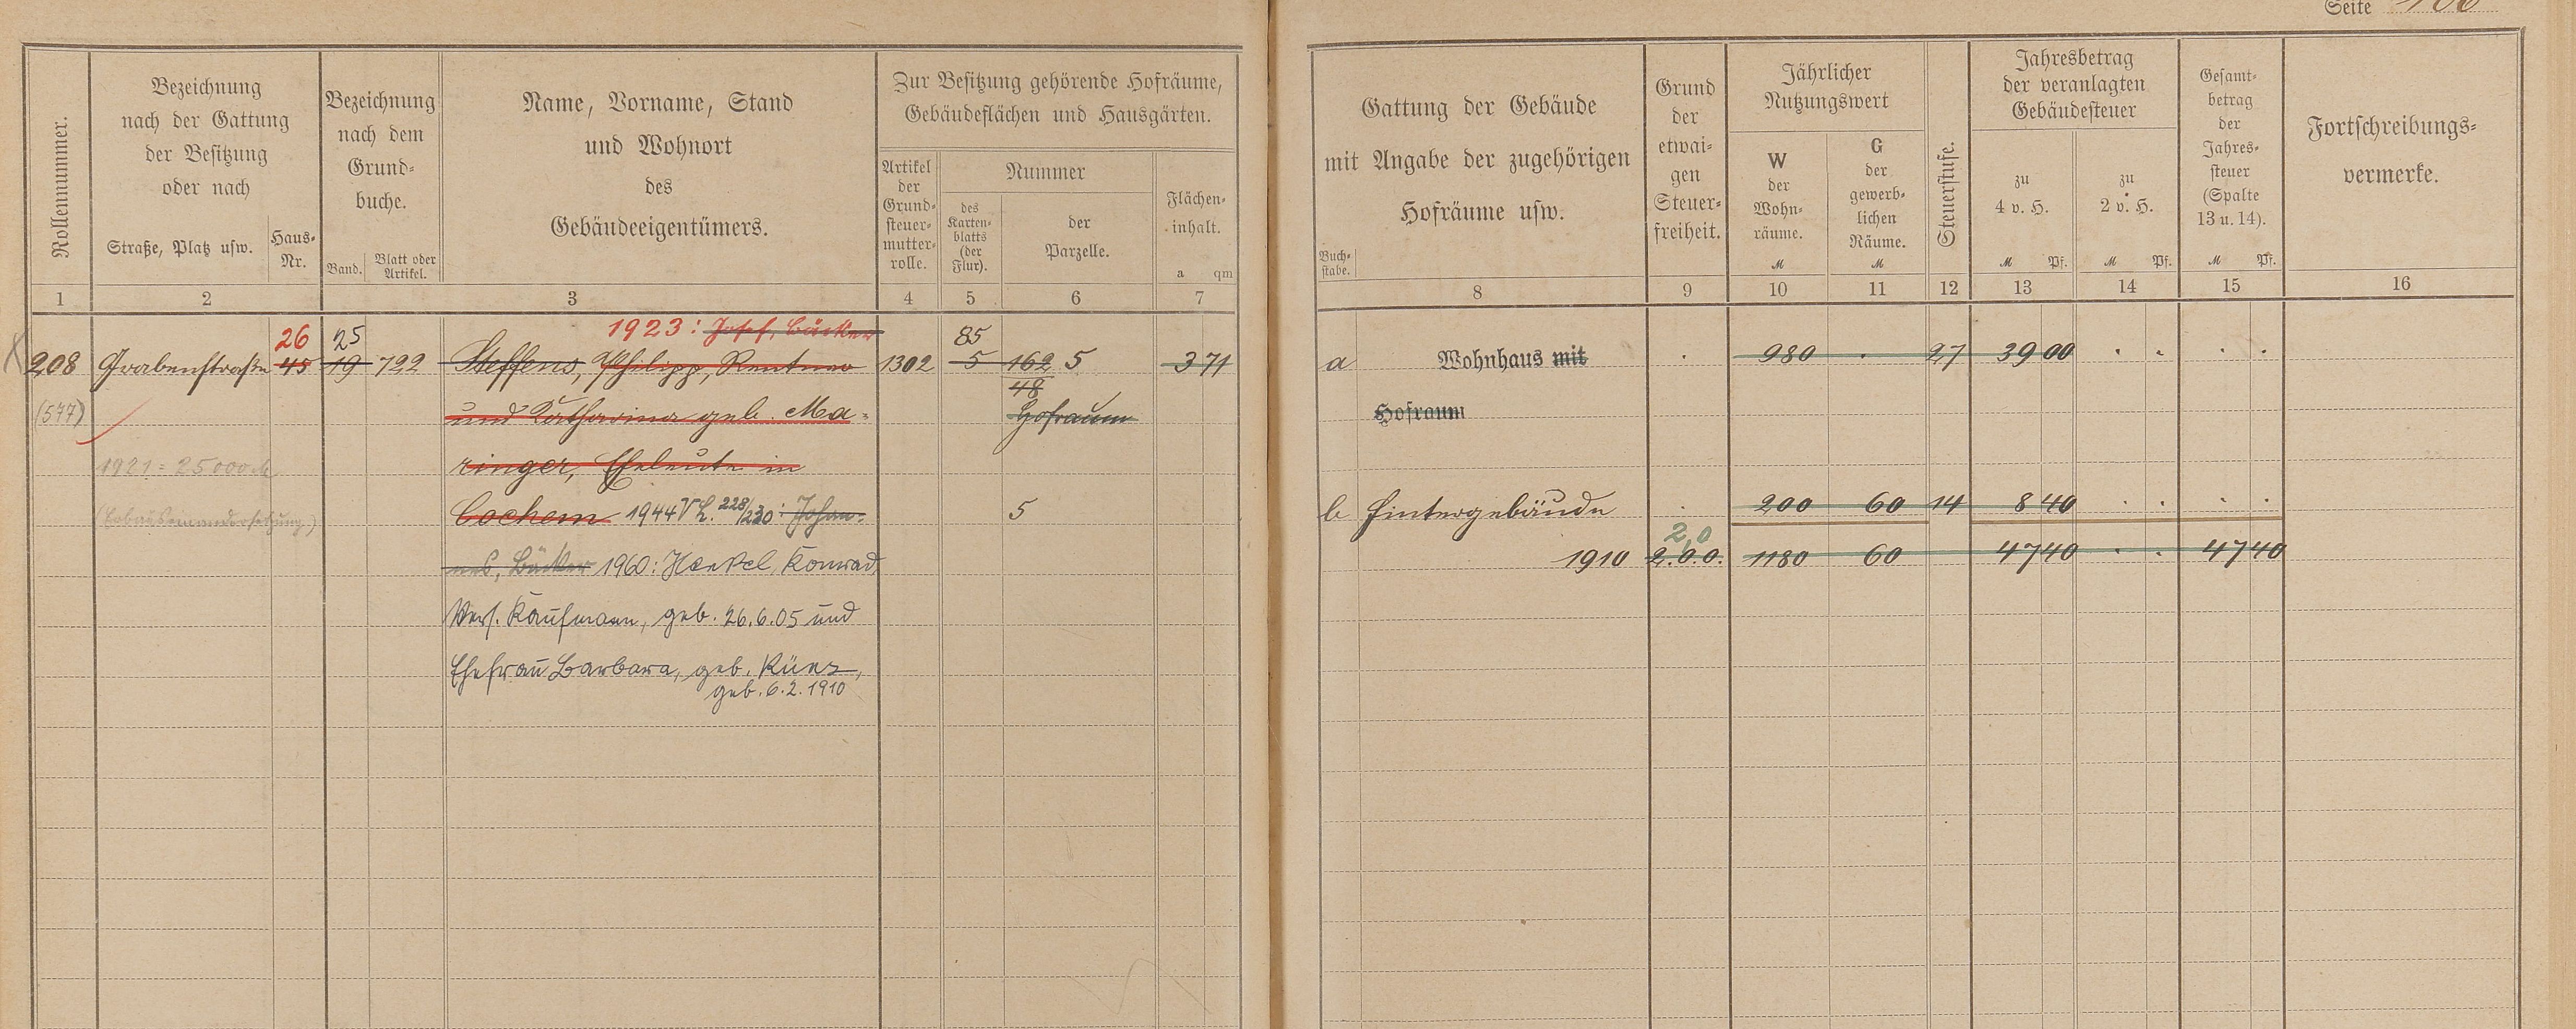 Seite 106
Rollennummer.
Bezeichnung
nach der Gattung
der Besitzung
oder nach
Straße, Platz usw.
Haus-
Nr.
Bezeichnung
nach dem
Grund-
buche.
Band.
Blatt oder
Artikel.
Name, Vorname, Stand
und Wohnort
des
Gebäudeeigentümers.
Zur Besitzung gehörende Hofräume,
Gebäudeflächen und Hausgärten.
Artikel
der
Grund-
steuer-
mutter-
rolle.
Nummer
des
Karten-
blatts
(der
Flur).
der
Parzelle.
Flächen-
inhalt.
a qm
1 2 3 4 5 6 7
Gattung der Gebäude
mit Angabe der zugehörigen
Hofräume usw.
Buch-
stabe.
Grund
der
etwai-
gen
Steuer-
freiheit.
Jährlicher
Nutzungswert
W
der
Wohn-
räume.
M
G
der
gewerb-
lichen
Räume.
M
Steuerstufe.
Jahresbetrag
der veranlagten
Gebäudesteuer
zu
4 v. H.
M Pf.
zu
2 v. H.
M Pf.
Gesamt-
betrag
der
Jahres-
steuer
(Spalte
13 u. 14).
M Pf.
Fortschreibungs-
vermerke.
8 9 10 11 12 13 14 15 16
26 25 1923: Josef, Bäcker 85
208 Grabenstraße 45 19 722 Steffens, Philipp, Rentner 1302 5 162 5 3 71
48
(577) und Katharina geb. Ma-
Hofraum
1921 = 25000 M
ringer, Eheleute in
(Erbauseinandersetzung)
Cochem 1944 VL. 228/230: Johan- 5
nes, Bäcker 1960: Henkel, Konrad,
Vers. Kaufmann, geb. 26.6.05 und
Ehefrau Barbara, geb. Künz,
geb. 6.2.1910
a Wohnhaus mit . 980 . 27 39 00 . . . .
Hofraum
b Hintergebäude . 200 60 14 8 40 . . . .
2,0
1910 2.0.0. 1180 60 47 40 . . 47 40